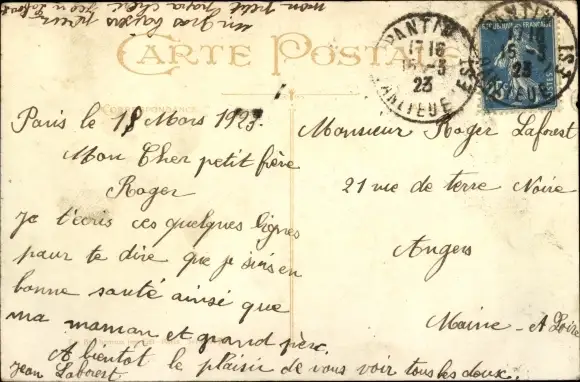 un gros baisers pour
mon petit
CARTE POSTALE
CORRESPONDANCE
PANTIN
17 16
15 - 3
23
BANLIEUE EST
PANTIN
15 - 3
23
BANLIEUE EST
Paris le 18 Mars 1923.
Mon Cher petit frère
Roger
Je t'ecris ces quelques lignes
pour te dire que je suis en
bonne santé ainsi que
ma maman et grand père.
A bientôt le plaisir de vous voir tous les deux.
Jean Laforest
Monsieur Roger Laforest
21 rue de terre Noire
Angers
Maine - A Loire